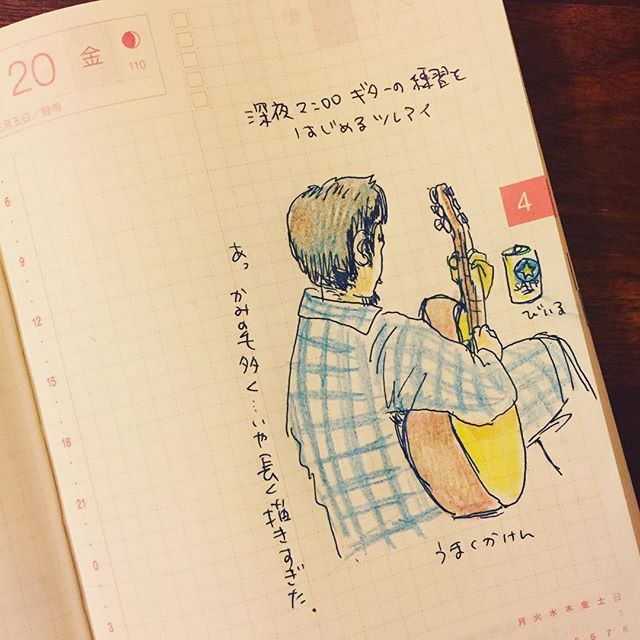 20 金
110
三月五日／穀雨
深夜2:00 ギターの練習を
はじめるツレアイ
4
びいる
あっ かみの毛多く…いや長く描きすぎた。
うまくかけん
6
9
12
15
18
21
0
3
月 火 水 木 金 土 日
1
6 7 8